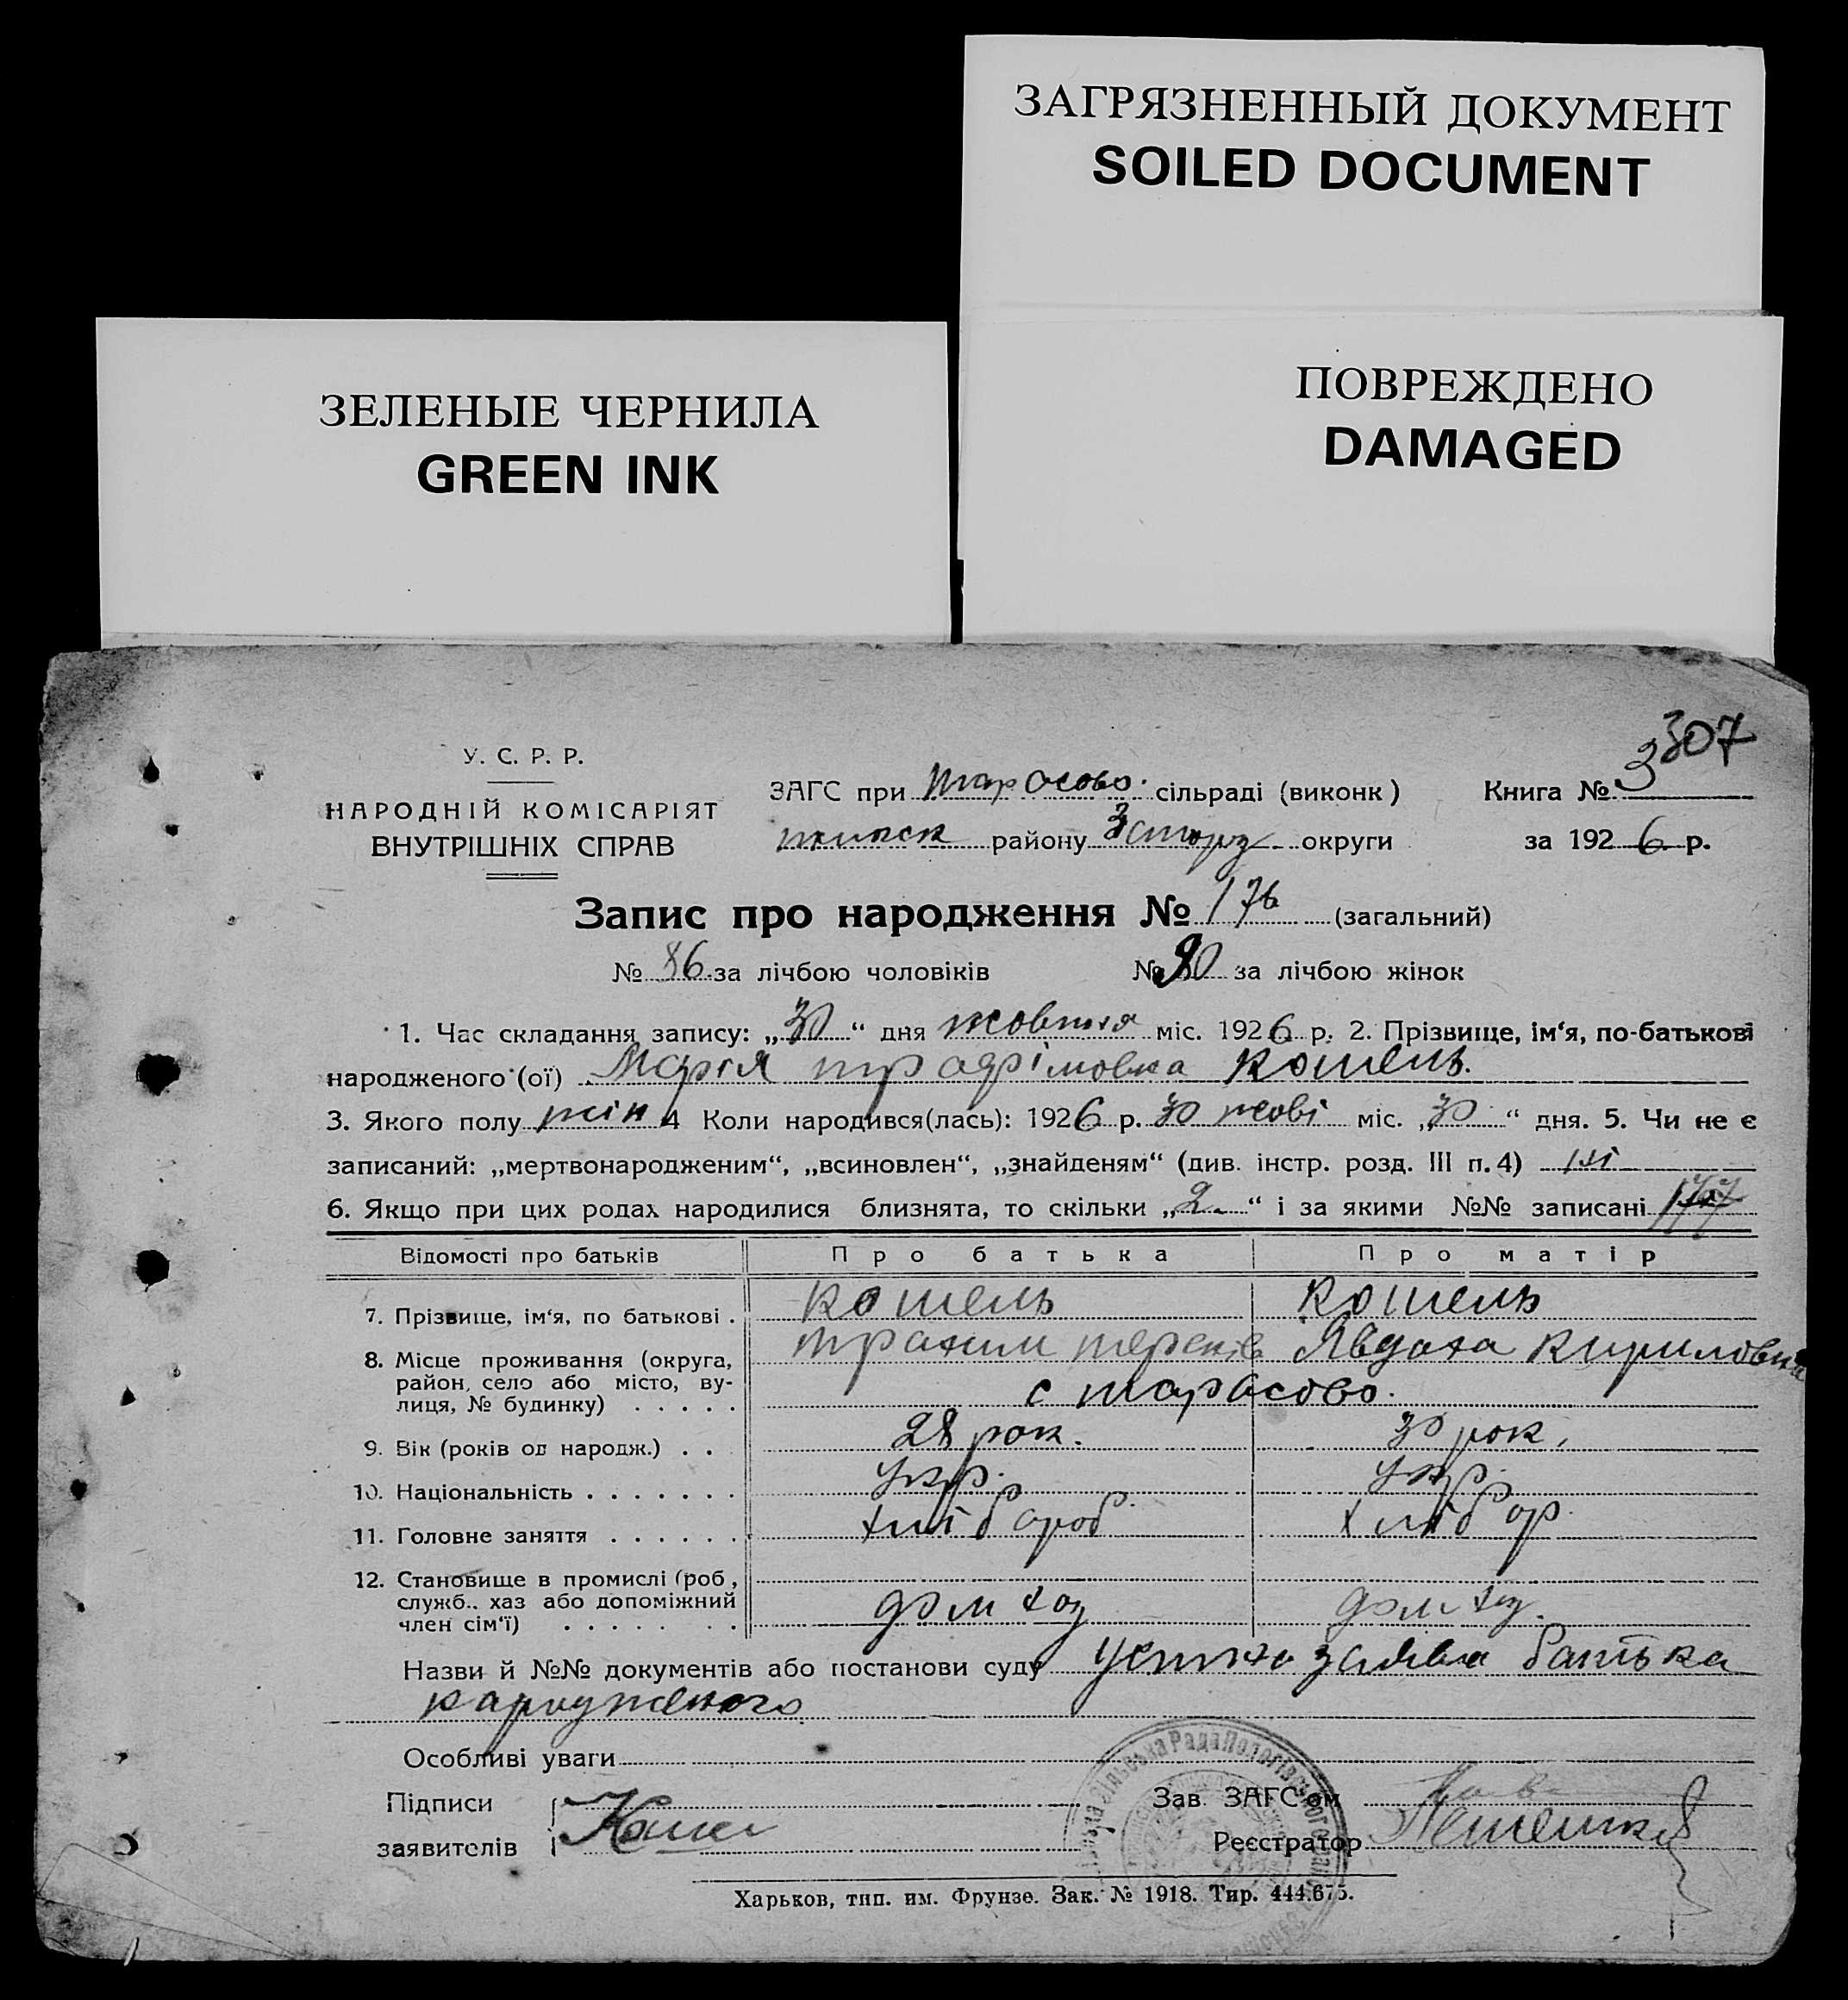 ЗАГРЯЗНЕННЫЙ ДОКУМЕНТ
SOILED DOCUMENT
ЗЕЛЕНЫЕ ЧЕРНИЛА
GREEN INK
ПОВРЕЖДЕНО
DAMAGED
307
У. С. Р. Р.
НАРОДНІЙ КОМІСАРІЯТ
ВНУТРІШНІХ СПРАВ
ЗАГС при Тарасово. сільраді (виконк) Книга № 3
району округи за 1926 р.
Запис про народження № 176 (загальний)
№ 86 за лічбою чоловіків № 90 за лічбою жінок
1. Час складання запису: „30“ дня жовтня міс. 1926 р. 2. Прізвище, ім‘я, по-батькові
народженого (ої) Марія трафімовна Кошель.
3. Якого полу жін 4 Коли народився(лась): 1926 р. 30 жові міс. „30“ дня. 5. Чи не є
записаний: „мертвонародженим“, „всиновлен“, „знайденям“ (див. інстр. розд. III п. 4) ні
6. Якщо при цих родах народилися близнята, то скільки „2.“ і за якими №№ записані
Відомості про батьків Про батька Про матір
7. Прізвище, ім‘я, по батькові . Кошель Кошель
трахим Явдоха Кириловна
8. Місце проживання (округа, район, село або місто, вулиця, № будинку) . . . . . с тарасово.
9. Вік (років од народж.) . . 28 рок. 30 рок.
10. Національність . . . . . . . укр. укр.
11. Головне заняття . . . . . . хлібороб хлібор.
12. Становище в промислі (роб, служб., хаз або допоміжний член сім‘ї) . . . . . . . дом хоз дом хоз.
Назви й №№ документів або постанови суду устна заява батька
народженого
Особливі уваги
Підписи
заявителів Коше
Зав. ЗАГС‘ом
Реєстратор
Харьков, тип. им. Фрунзе. Зак. № 1918. Тир. 444.675.